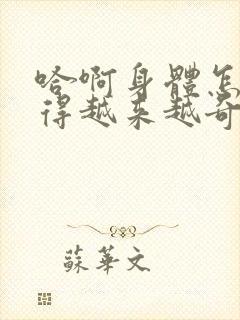 哈啊身體怎
得越来越奇
蘇華文